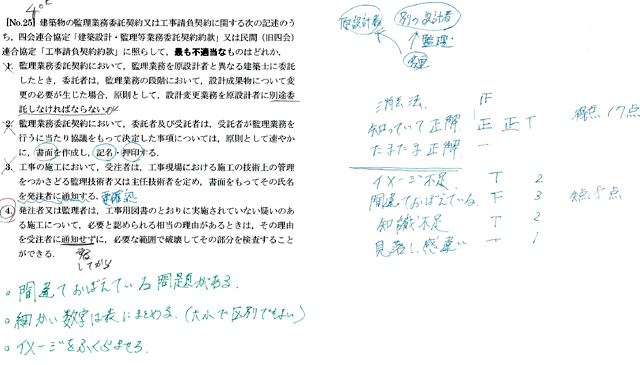 [No.25] 建築物の監理業務委託契約又は工事請負契約に関する次の記述のう
ち、四会連合協定「建築設計・監理等業務委託契約約款」又は民間(旧四会)
連合協定「工事請負契約約款」に照らして、最も不適当なものはどれか。
1. 監理業務委託契約において、監理業務を原設計者と異なる建築士に委託
したとき、委託者は、監理業務の段階において、設計成果物について変
更の必要が生じた場合、原則として、設計変更業務を原設計者に別途委
託しなければならない。
2. 監理業務委託契約において、委託者及び受託者は、受託者が監理業務を
行うに当たり協議をもって決定した事項については、原則として速やか
に、書面を作成し、記名・押印する。
3. 工事の施工において、受注者は、工事現場における施工の技術上の管理
をつかさどる監理技術者又は主任技術者を定め、書面をもってその氏名
を発注者に通知する。
4. 発注者又は監理者は、工事用図書のとおりに実施されていない疑いのあ
る施工について、必要と認められる相当の理由があるときは、その理由
を受注者に通知せずに、必要な範囲で破壊してその部分を検査すること
ができる。
する
してから
。間違ておぼえている問題がある。
。細かい数字は表にまとめる。
。イメージをふくらませる。
原設計者
別の設計者
監理
消去法 F
知っていて正解 正 正 T
たまたま正解 一
得点17点
イメージ不足 T 2
間違ておぼえている F 3
知識不足 T 2
見落し、感違い T 1